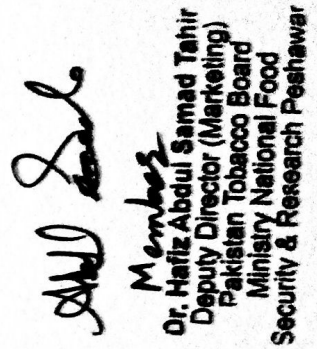 Member
Dr. Hafiz Abdul Samad Tahir
Deputy Director (Marketing)
Pakistan Tobacco Board
Ministry National Food
Security & Research Peshawar